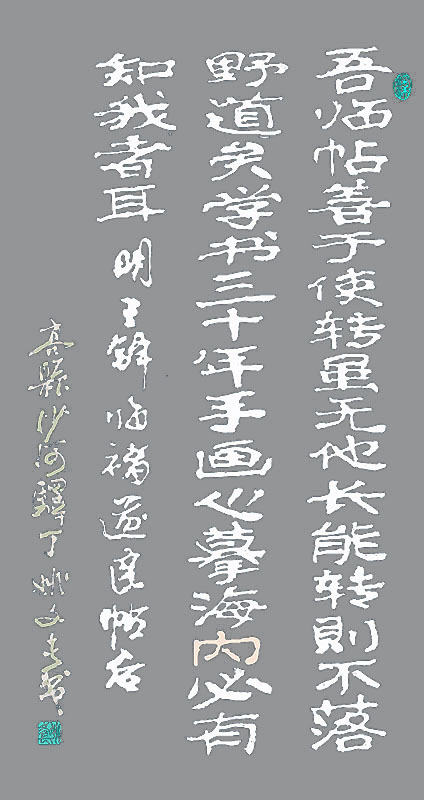 吾临帖善于使转虽无他长能转則不落
野道矣学书三十年手画心摹海内必有
知我者耳 明王铎临褚遂良帖后
高縣沙河驛丁 姚文书